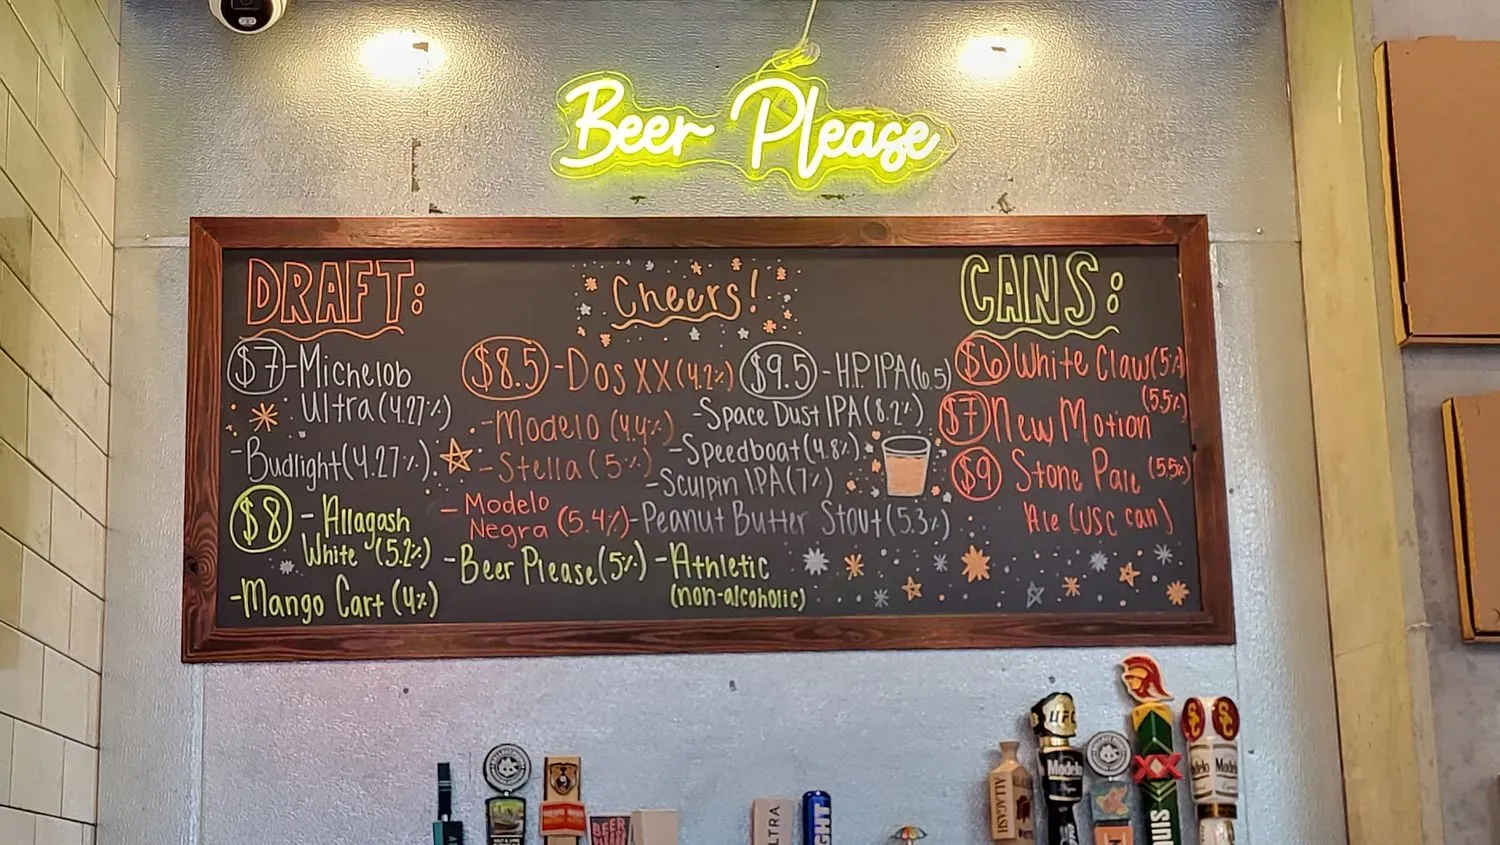 Beer Please
DRAFT:
Cheers!
CANS:
$7 - Michelob
Ultra (4.27%)
- Budlight (4.27%)
$8 - Allagash
White (5.2%)
- Mango Cart (4%)
$8.5 - Dos XX (4.2%)
- Modelo (4.4%)
- Stella (5%)
- Modelo
Negra (5.4%)
- Beer Please (5%)
$9.5 - H.P. IPA (6.5)
- Space Dust IPA (8.2%)
- Speedboat (4.8%)
- Sculpin IPA (7%)
- Peanut Butter Stout (5.3%)
- Athletic
(non-alcoholic)
$6 White Claw (5%)
$7 New Motion (5.5%)
$9 Stone Pale (5.5%)
Ale (USC can)
BEER
ULTRA
LIGHT
ALLAGASH
WHITE
UFC
Modelo
XX
SC
SC
Modelo
Modelo